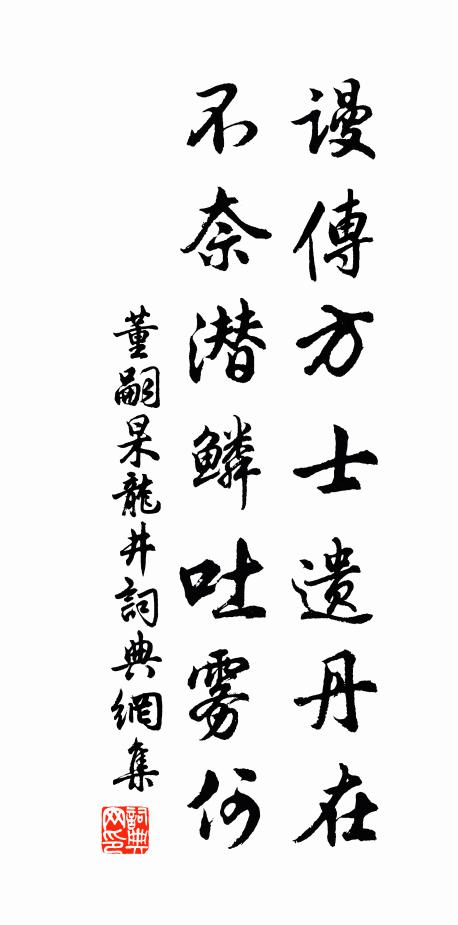 謾傳方士遺丹在
不奈潛鱗吐雾何
董嗣杲龍井詞典網集
詞典网印